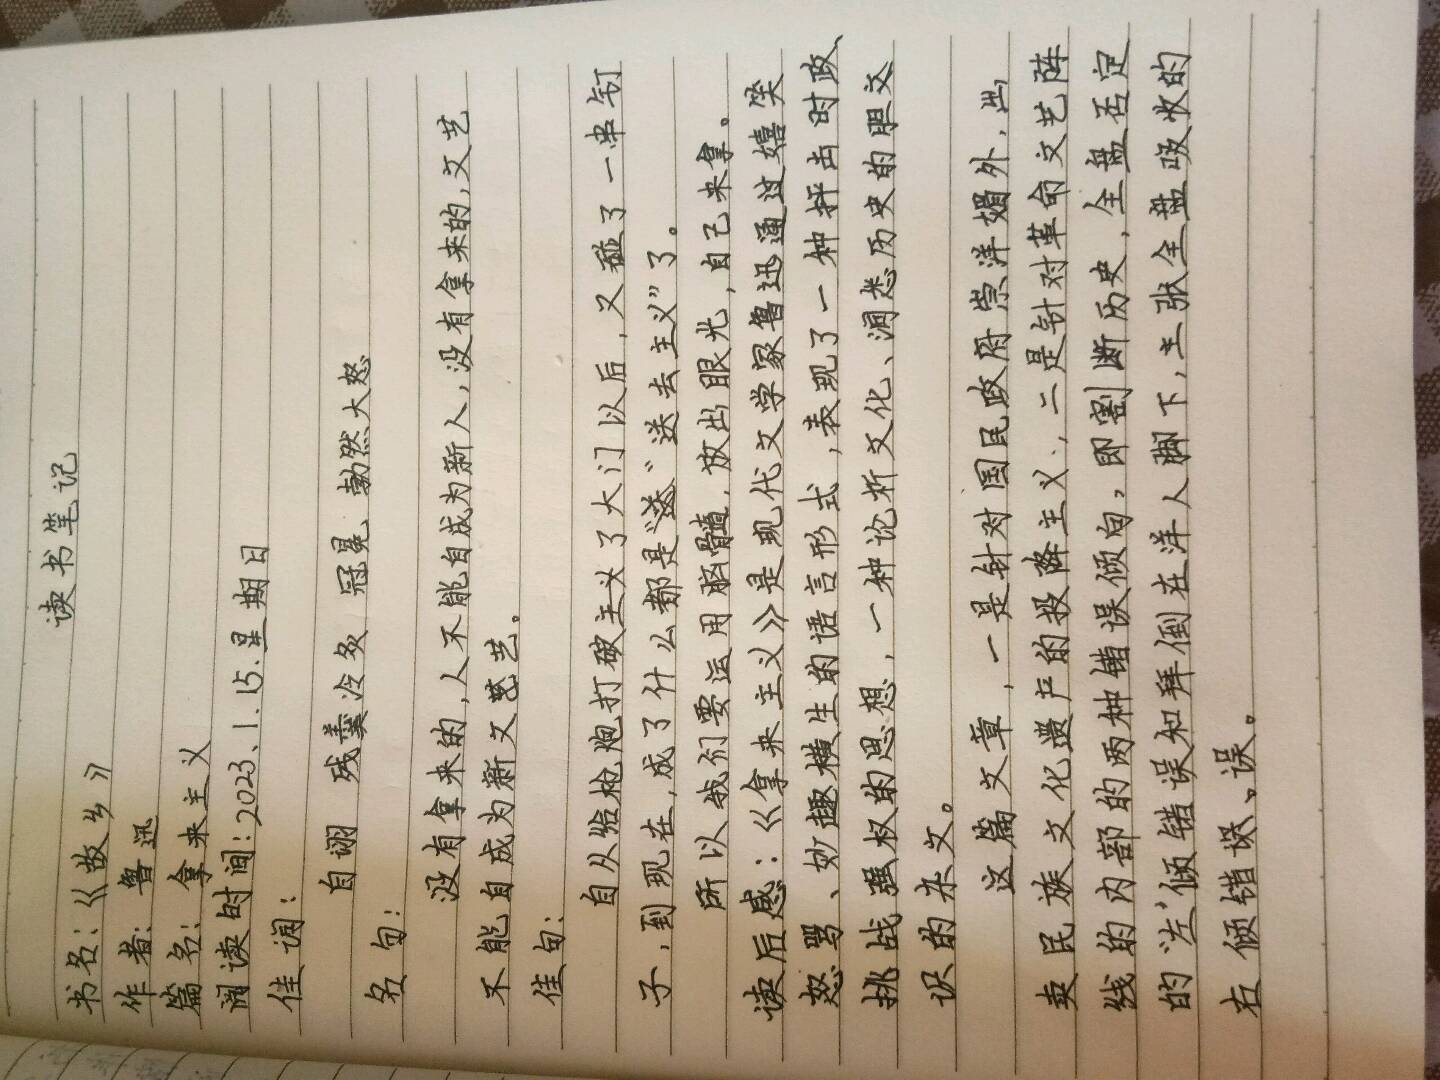 读书笔记
书名:《故乡》
作者:鲁迅
篇名:拿来主义
阅读时间:2023、1.15.星期日
佳词:
自诩 残羹冷炙 冠冕 勃然大怒
名句:
没有拿来的,人不能自成为新人,没有拿来的,文艺
不能自成为新文艺。
佳句:
自从给枪炮打破主义了大门以后,又碰了一串钉
子,到现在,成了什么都是“送”送去主义”了。
所以我们要运用脑髓,放出眼光,自己来拿。
读后感:《拿来主义》是现代文学家鲁迅通过嬉笑
怒骂、妙趣横生的语言形式,表现了一种抨击时政、
挑战强权的思想,一种论析文化、洞悉历史的胆文
识的杂文。
这篇文章,一是针对国民政府崇洋媚外,出
卖民族文化遗产的投降主义,二是针对革命文艺阵
线的内部的两种错误倾向,即割断历史,全盘否定
的“左”倾错误和拜倒在洋人脚下,主张全盘吸收的
右倾错误。误。